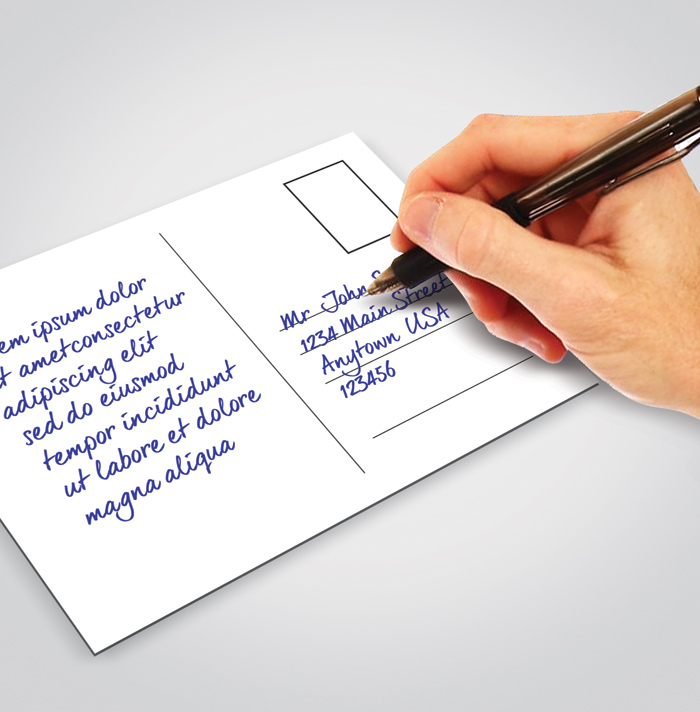 ipsum dolor
amet consectetur
adipiscing elit
sed do eiusmod
tempor incididunt
ut labore et dolore
magna aliqua
Mr. John
1234 Main Street
Anytown USA
123456